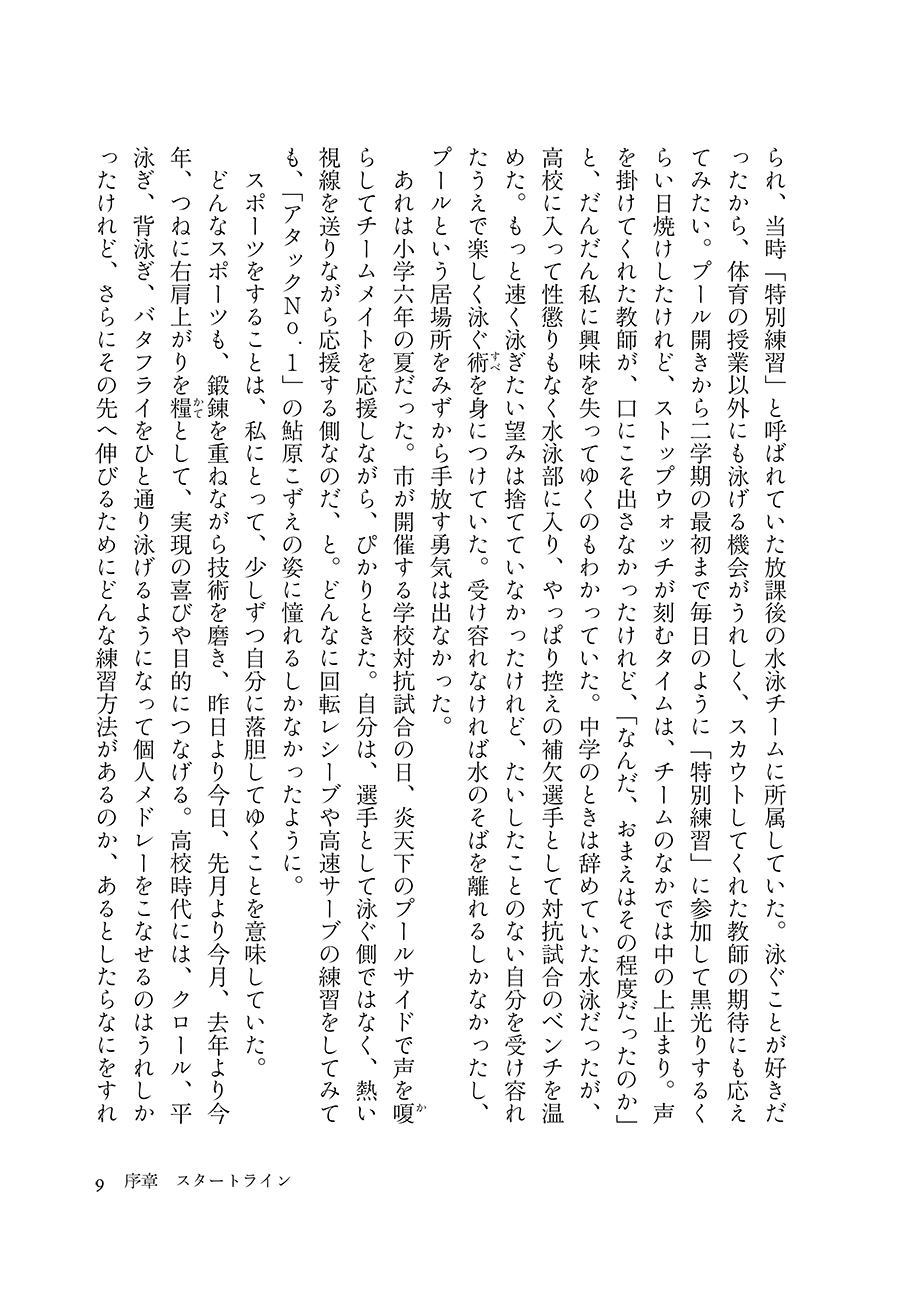 られ、当時「特別練習」と呼ばれていた放課後の水泳チームに所属していた。泳ぐことが好きだ
ったから、体育の授業以外にも泳げる機会がうれしく、スカウトしてくれた教師の期待にも応え
てみたい。プール開きから二学期の最初まで毎日のように「特別練習」に参加して黒光りするく
らい日焼けしたけれど、ストップウォッチが刻むタイムは、チームのなかでは中の上止まり。声
を掛けてくれた教師が、口にこそ出さなかったけれど、「なんだ、おまえはその程度だったのか」
と、だんだん私に興味を失ってゆくのもわかっていた。中学のときは辞めていた水泳だったが、
高校に入って性懲りもなく水泳部に入り、やっぱり控えの補欠選手として対抗試合のベンチを温
めた。もっと速く泳ぎたい望みは捨てていなかったけれど、たいしたことのない自分を受け容れ
たうえで楽しく泳ぐ術すべを身につけていた。受け容れなければ水のそばを離れるしかなかったし、
プールという居場所をみずから手放す勇気は出なかった。
あれは小学六年の夏だった。市が開催する学校対抗試合の日、炎天下のプールサイドで声を嗄か
らしてチームメイトを応援しながら、ぴかりときた。自分は、選手として泳ぐ側ではなく、熱い
視線を送りながら応援する側なのだ、と。どんなに回転レシーブや高速サーブの練習をしてみて
も、「アタックNo.1」の鮎原こずえの姿に憧れるしかなかったように。
スポーツをすることは、私にとって、少しずつ自分に落胆してゆくことを意味していた。
どんなスポーツも、鍛錬を重ねながら技術を磨き、昨日より今日、先月より今月、去年より今
年、つねに右肩上がりを糧かてとして、実現の喜びや目的につなげる。高校時代には、クロール、平
泳ぎ、背泳ぎ、バタフライをひと通り泳げるようになって個人メドレーをこなせるのはうれしか
ったけれど、さらにその先へ伸びるためにどんな練習方法があるのか、あるとしたらなにをすれ
9 序章 スタートライン